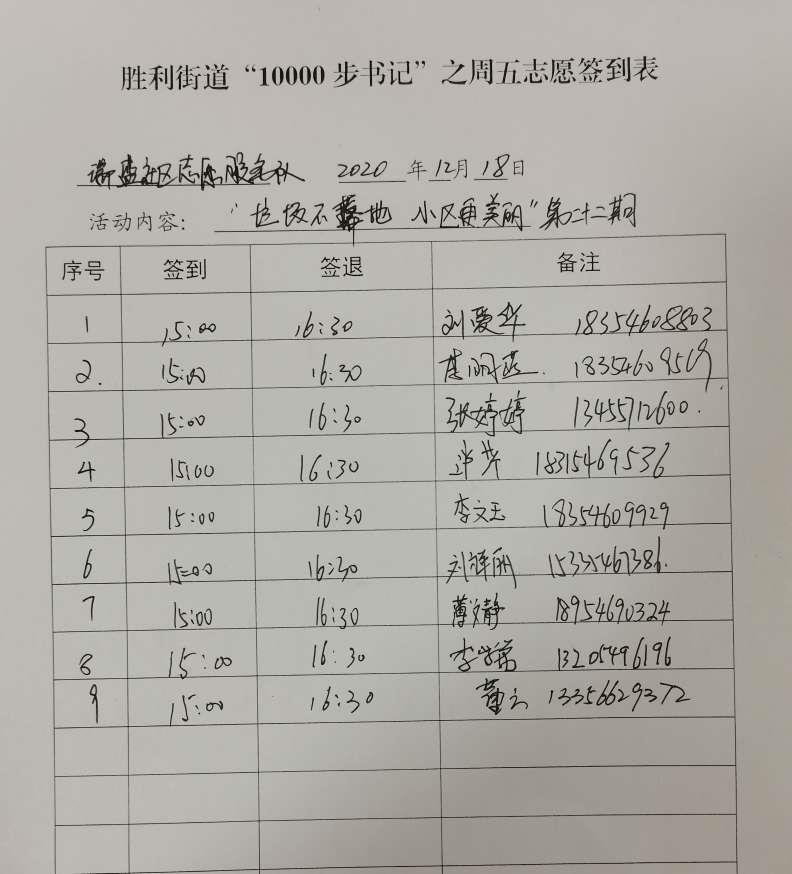 胜利街道“10000步书记”之周五志愿签到表
社区志愿服务队 2020年12月18日
活动内容：“垃圾不落地 小区更美丽”第二十二期
序号 签到 签退 备注
1 15:00 16:30 刘爱华 18354608803
2. 15:00 16:30 183546095
3 15:00 16:30 张婷婷 13455712600.
4 15:00 16:30 18315469536
5 15:00 16:30 李文玉 18354609929
6 15:00 16:30 刘 丽 15335467386.
7 15:00 16:30 静 18954690324
8 15:00 16:30 李 13205496196
9 15:00 16:30 董云 13356629372